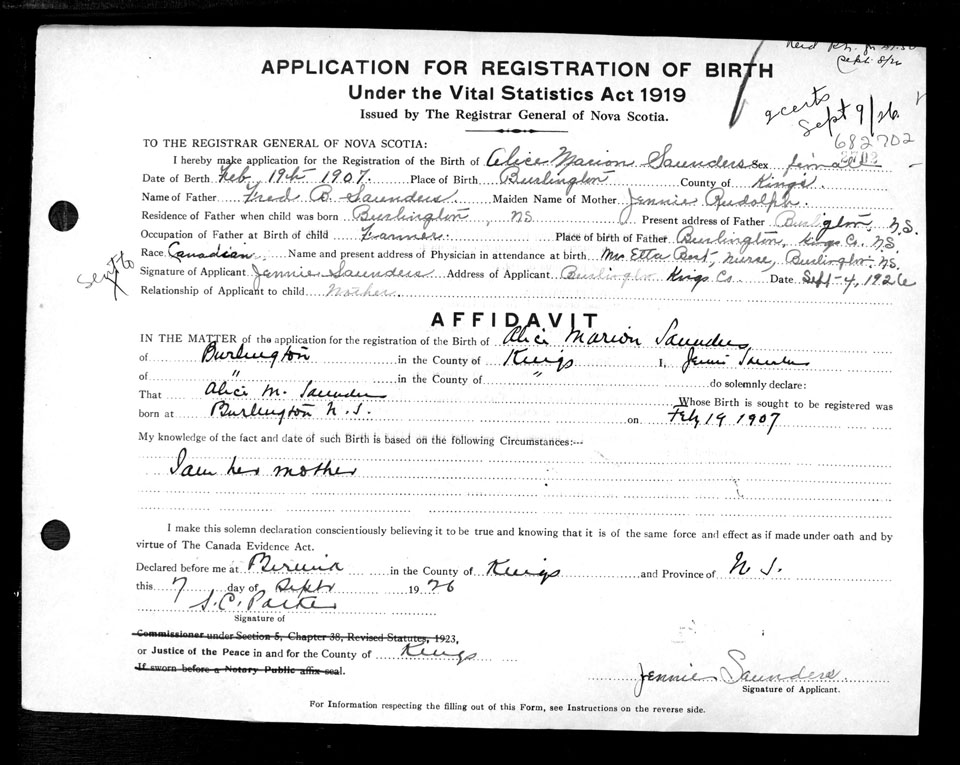 Sept. 8/26
APPLICATION FOR REGISTRATION OF BIRTH
Under the Vital Statistics Act 1919
2 certs
Sept 9/26
Issued by The Registrar General of Nova Scotia.
682702
TO THE REGISTRAR GENERAL OF NOVA SCOTIA:
I hereby make application for the Registration of the Birth of Alice Marion Saunders Sex
Date of Berth Feb. 19th 1907. Place of Birth Burlington County of Kings.
Name of Father Fred B. Saunders. Maiden Name of Mother Jennie Rudolph.
Residence of Father when child was born Burlington, NS Present address of Father Burlington, N.S.
Occupation of Father at Birth of child Farmer. Place of birth of Father Burlington, Kings Co. NS
Race Canadian, Name and present address of Physician in attendance at birth Mrs Etta Bent, Nurse, Burlington. NS.
Sent to
Signature of Applicant Jennie Saunders Address of Applicant Burlington Kings Co. Date Sept-4, 1926
Relationship of Applicant to child Mother.
AFFIDAVIT
IN THE MATTER of the application for the registration of the Birth of Alice Marion Saunders
of Burlington in the County of Kings I, Jennie Saunders
of " in the County of " do solemnly declare:
That Alice M. Saunders Whose Birth is sought to be registered was
born at Burlington N.S. on Feby 19 1907
My knowledge of the fact and date of such Birth is based on the following Circumstances:—
I am her mother
I make this solemn declaration conscientiously believing it to be true and knowing that it is of the same force and effect as if made under oath and by
virtue of The Canada Evidence Act.
Declared before me at Berwick in the County of Kings and Province of N S.
this 7 day of Septr 1926
S. C. Parker
Signature of
Commissioner under Section 5, Chapter 38, Revised Statutes, 1923,
or Justice of the Peace in and for the County of Kings
If sworn before a Notary Public affix seal.
Jennie Saunders
Signature of Applicant.
For Information respecting the filling out of this Form, see Instructions on the reverse side.